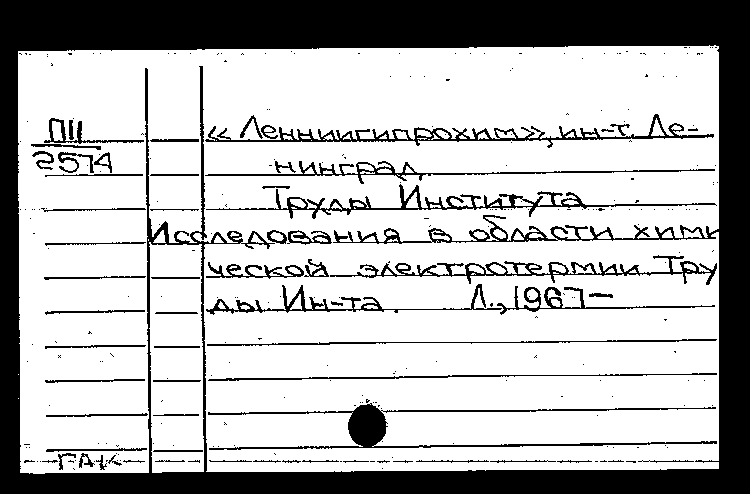 ПII
2574
« Ленниигипрохим», ин-т. Ле-
нинград.
Труды Института.
Исследования в области хими
ческой электротермии. Тру
ды Ин-та. Л., 1967—
ГАК